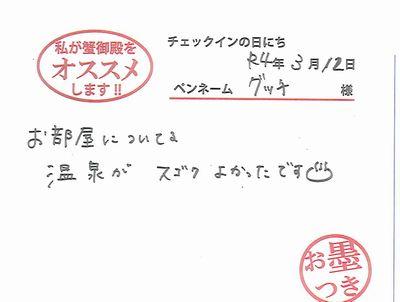 私が蟹御殿を
オススメ
します!!
チェックインの日にち
R4年 3月12日
ペンネーム グッチ 様
お部屋についてる
温泉が スゴク よかったです
お墨
つき